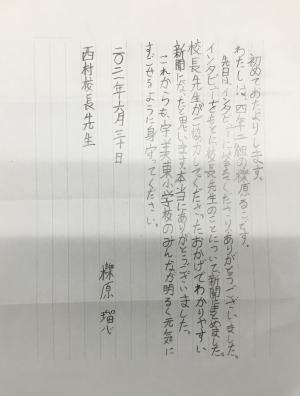 初めておたよりします。
わたしは、四年二組の櫟原るこです。
先日はインタビューに答えてくださりありがとうございました。
インタビューをもとに校長先生のことについて新聞にまとめました。
校長先生がご協力してくださったおかげでわかりやすい
新聞になったと思います。本当にありがとうございました。
これからも、宇美東小学校のみんなが明るく元気に
すごせるように見守ってください。
二〇二一年六月三十日
櫟原 瑠心
西村校長先生